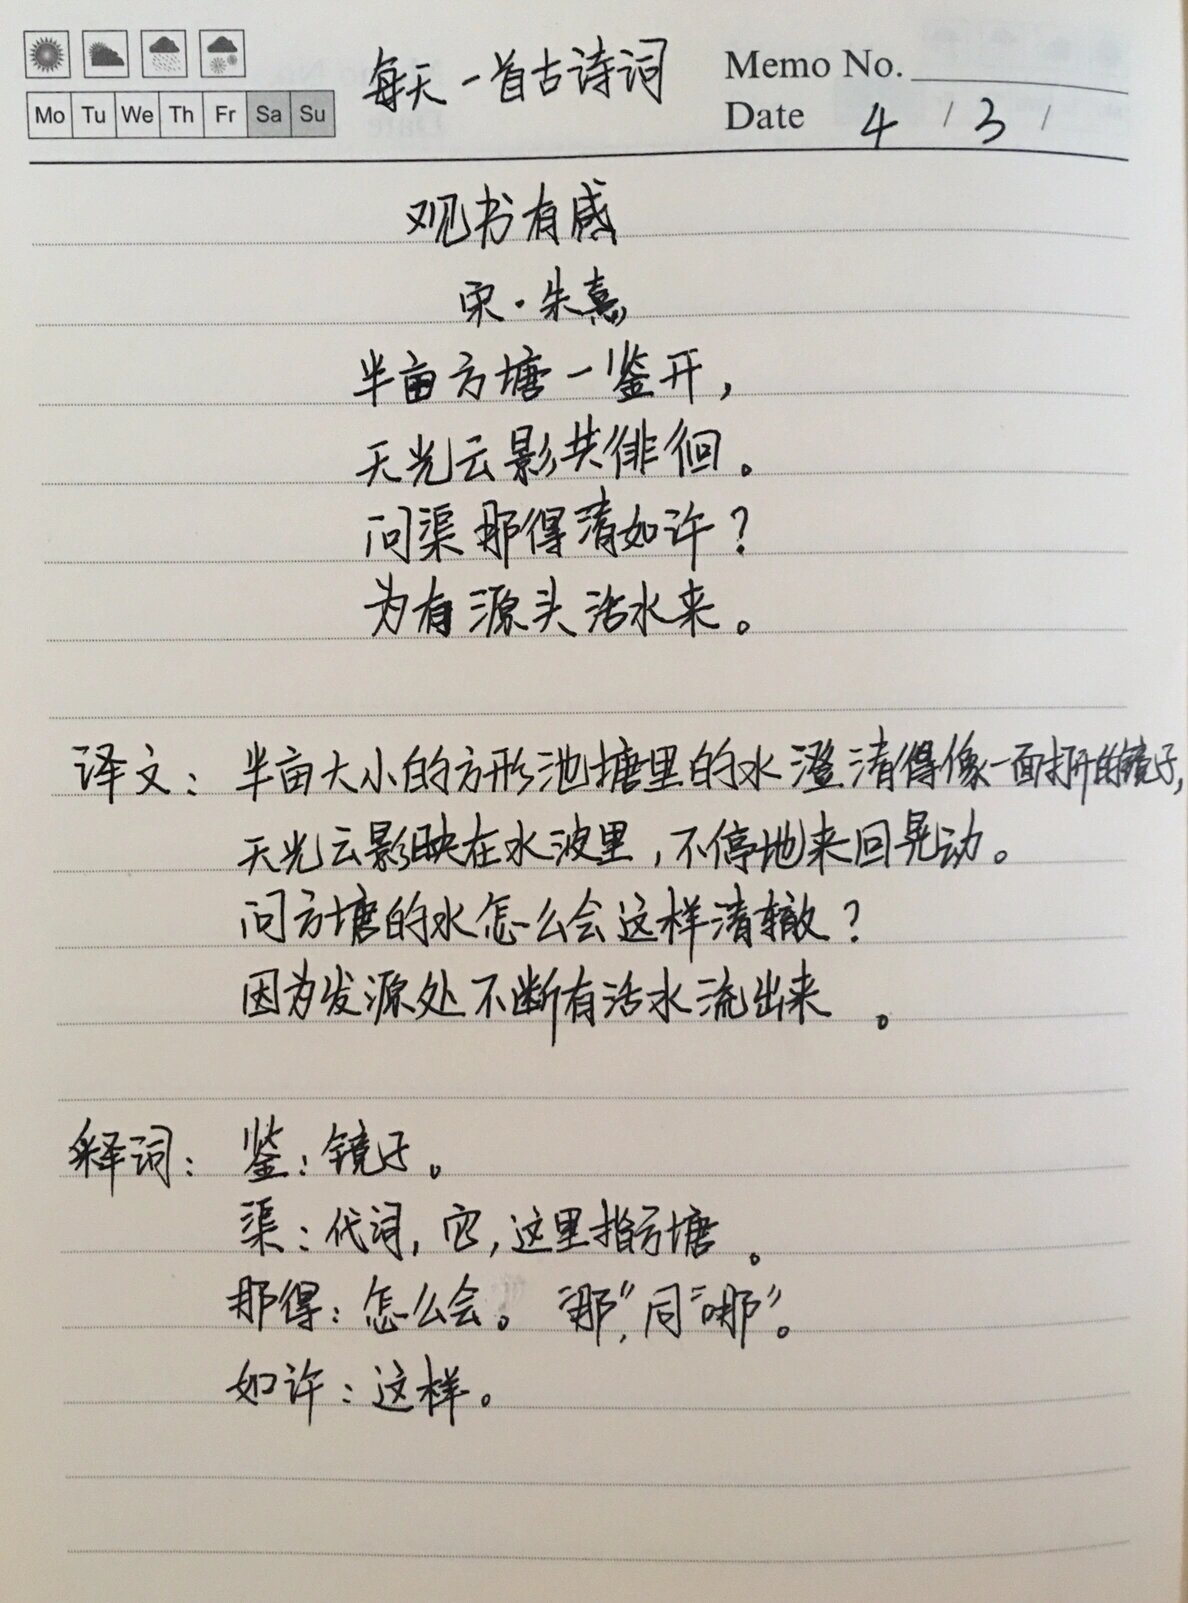 每天一首古诗词
Memo No.
Mo Tu We Th Fr Sa Su
Date 4 / 3 /
观书有感
宋·朱熹
半亩方塘一鉴开，
天光云影共徘徊。
问渠那得清如许？
为有源头活水来。
译文：半亩大小的方形池塘里的水澄清得像一面打开的镜子，
天光云影映在水波里，不停地来回晃动。
问方塘的水怎么会这样清辙？
因为发源处不断有活水流出来。
释词：鉴：镜子。
渠：代词，它，这里指方塘。
那得：怎么会。“那”，同“哪”。
如许：这样。